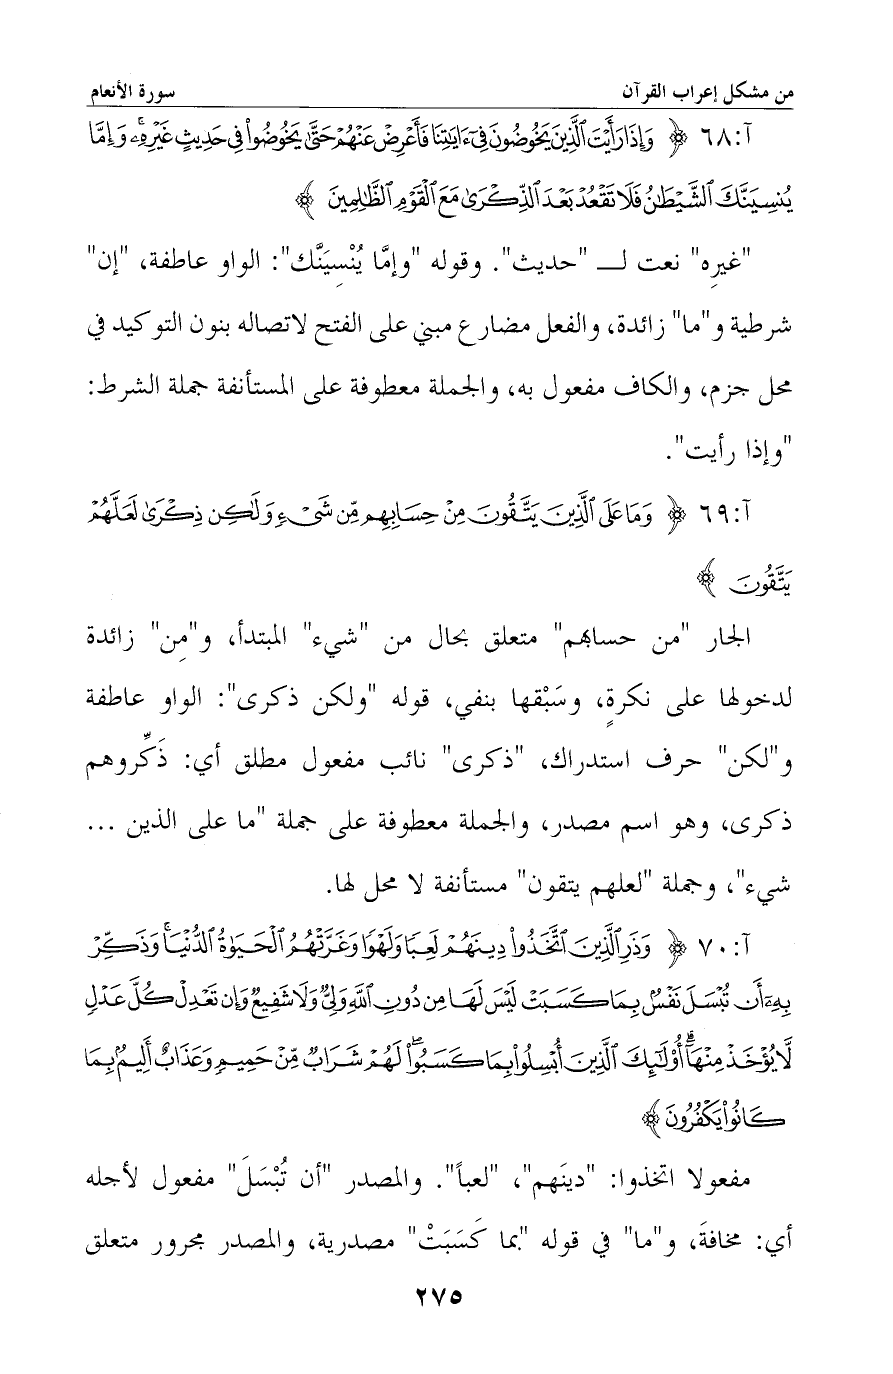 من مشكل إعراب القرآن سورة الأنعام
آ:٦٨ ﴿ وَإِذَا رَأَيْتَ ٱلَّذِينَ يَخُوضُونَ فِىٓ ءَايَٰتِنَا فَأَعْرِضْ عَنْهُمْ حَتَّىٰ يَخُوضُوا۟ فِى حَدِيثٍ غَيْرِهِۦ ۚ وَإِمَّا
يُنسِيَنَّكَ ٱلشَّيْطَٰنُ فَلَا تَقْعُدْ بَعْدَ ٱلذِّكْرَىٰ مَعَ ٱلْقَوْمِ ٱلظَّٰلِمِينَ ﴾
"غيرِه" نعت لـ "حديث". وقوله "وإمَّا يُنْسِيَنَّك": الواو عاطفة، "إن"
شرطية و"ما" زائدة، والفعل مضارع مبني على الفتح لاتصاله بنون التوكيد في
محل جزم، والكاف مفعول به، والجملة معطوفة على المستأنفة جملة الشرط:
"وإذا رأيت".
آ:٦٩ ﴿ وَمَا عَلَى ٱلَّذِينَ يَتَّقُونَ مِنْ حِسَابِهِم مِّن شَىْءٍ وَلَٰكِن ذِكْرَىٰ لَعَلَّهُمْ
يَتَّقُونَ ﴾
الجار "من حسابهم" متعلق بحال من "شيء" المبتدأ، و"مِن" زائدة
لدخولها على نكرةٍ، وسَبْقها بنفي، قوله "ولكن ذكرى": الواو عاطفة
و"لكن" حرف استدراك، "ذكرى" نائب مفعول مطلق أي: ذَكِّروهم
ذكرى، وهو اسم مصدر، والجملة معطوفة على جملة "ما على الذين ...
شيء"، وجملة "لعلهم يتقون" مستأنفة لا محل لها.
آ:٧٠ ﴿ وَذَرِ ٱلَّذِينَ ٱتَّخَذُوا۟ دِينَهُمْ لَعِبًا وَلَهْوًا وَغَرَّتْهُمُ ٱلْحَيَوٰةُ ٱلدُّنْيَا ۚ وَذَكِّرْ
بِهِۦٓ أَن تُبْسَلَ نَفْسٌۢ بِمَا كَسَبَتْ لَيْسَ لَهَا مِن دُونِ ٱللَّهِ وَلِىٌّ وَلَا شَفِيعٌ وَإِن تَعْدِلْ كُلَّ عَدْلٍ
لَّا يُؤْخَذْ مِنْهَآ ۗ أُو۟لَٰٓئِكَ ٱلَّذِينَ أُبْسِلُوا۟ بِمَا كَسَبُوا۟ ۖ لَهُمْ شَرَابٌ مِّنْ حَمِيمٍ وَعَذَابٌ أَلِيمٌۢ بِمَا
كَانُوا۟ يَكْفُرُونَ ﴾
مفعولا اتخذوا: "دينَهم"، "لعباً". والمصدر "أن تُبْسَلَ" مفعول لأجله
أي: مخافةَ، و"ما" في قوله "بما كَسَبَتْ" مصدرية، والمصدر مجرور متعلق
٢٧٥